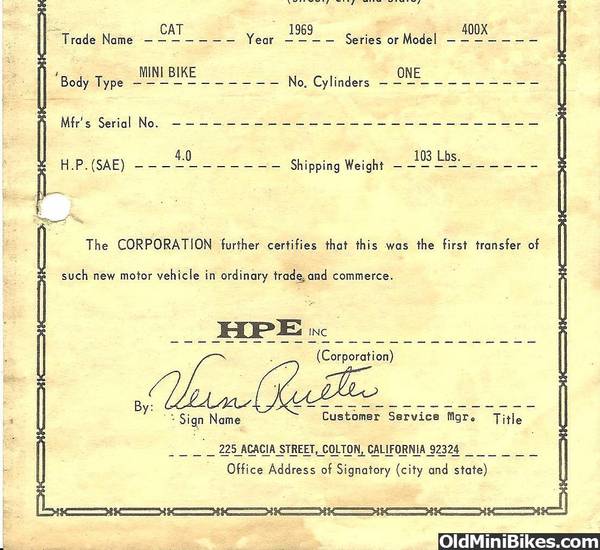 (street, city and state)
Trade Name CAT Year 1969 Series or Model 400X
Body Type MINI BIKE No. Cylinders ONE
Mfr's Serial No.
H.P. (SAE) 4.0 Shipping Weight 103 Lbs.
The CORPORATION further certifies that this was the first transfer of
such new motor vehicle in ordinary trade and commerce.
HPE INC
(Corporation)
By: Vern Rueter Customer Service Mgr. Title
Sign Name
225 ACACIA STREET, COLTON, CALIFORNIA 92324
Office Address of Signatory (city and state)
OldMiniBikes.com